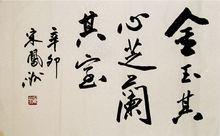 金玉其
心芝蘭
其室
辛卯
宋